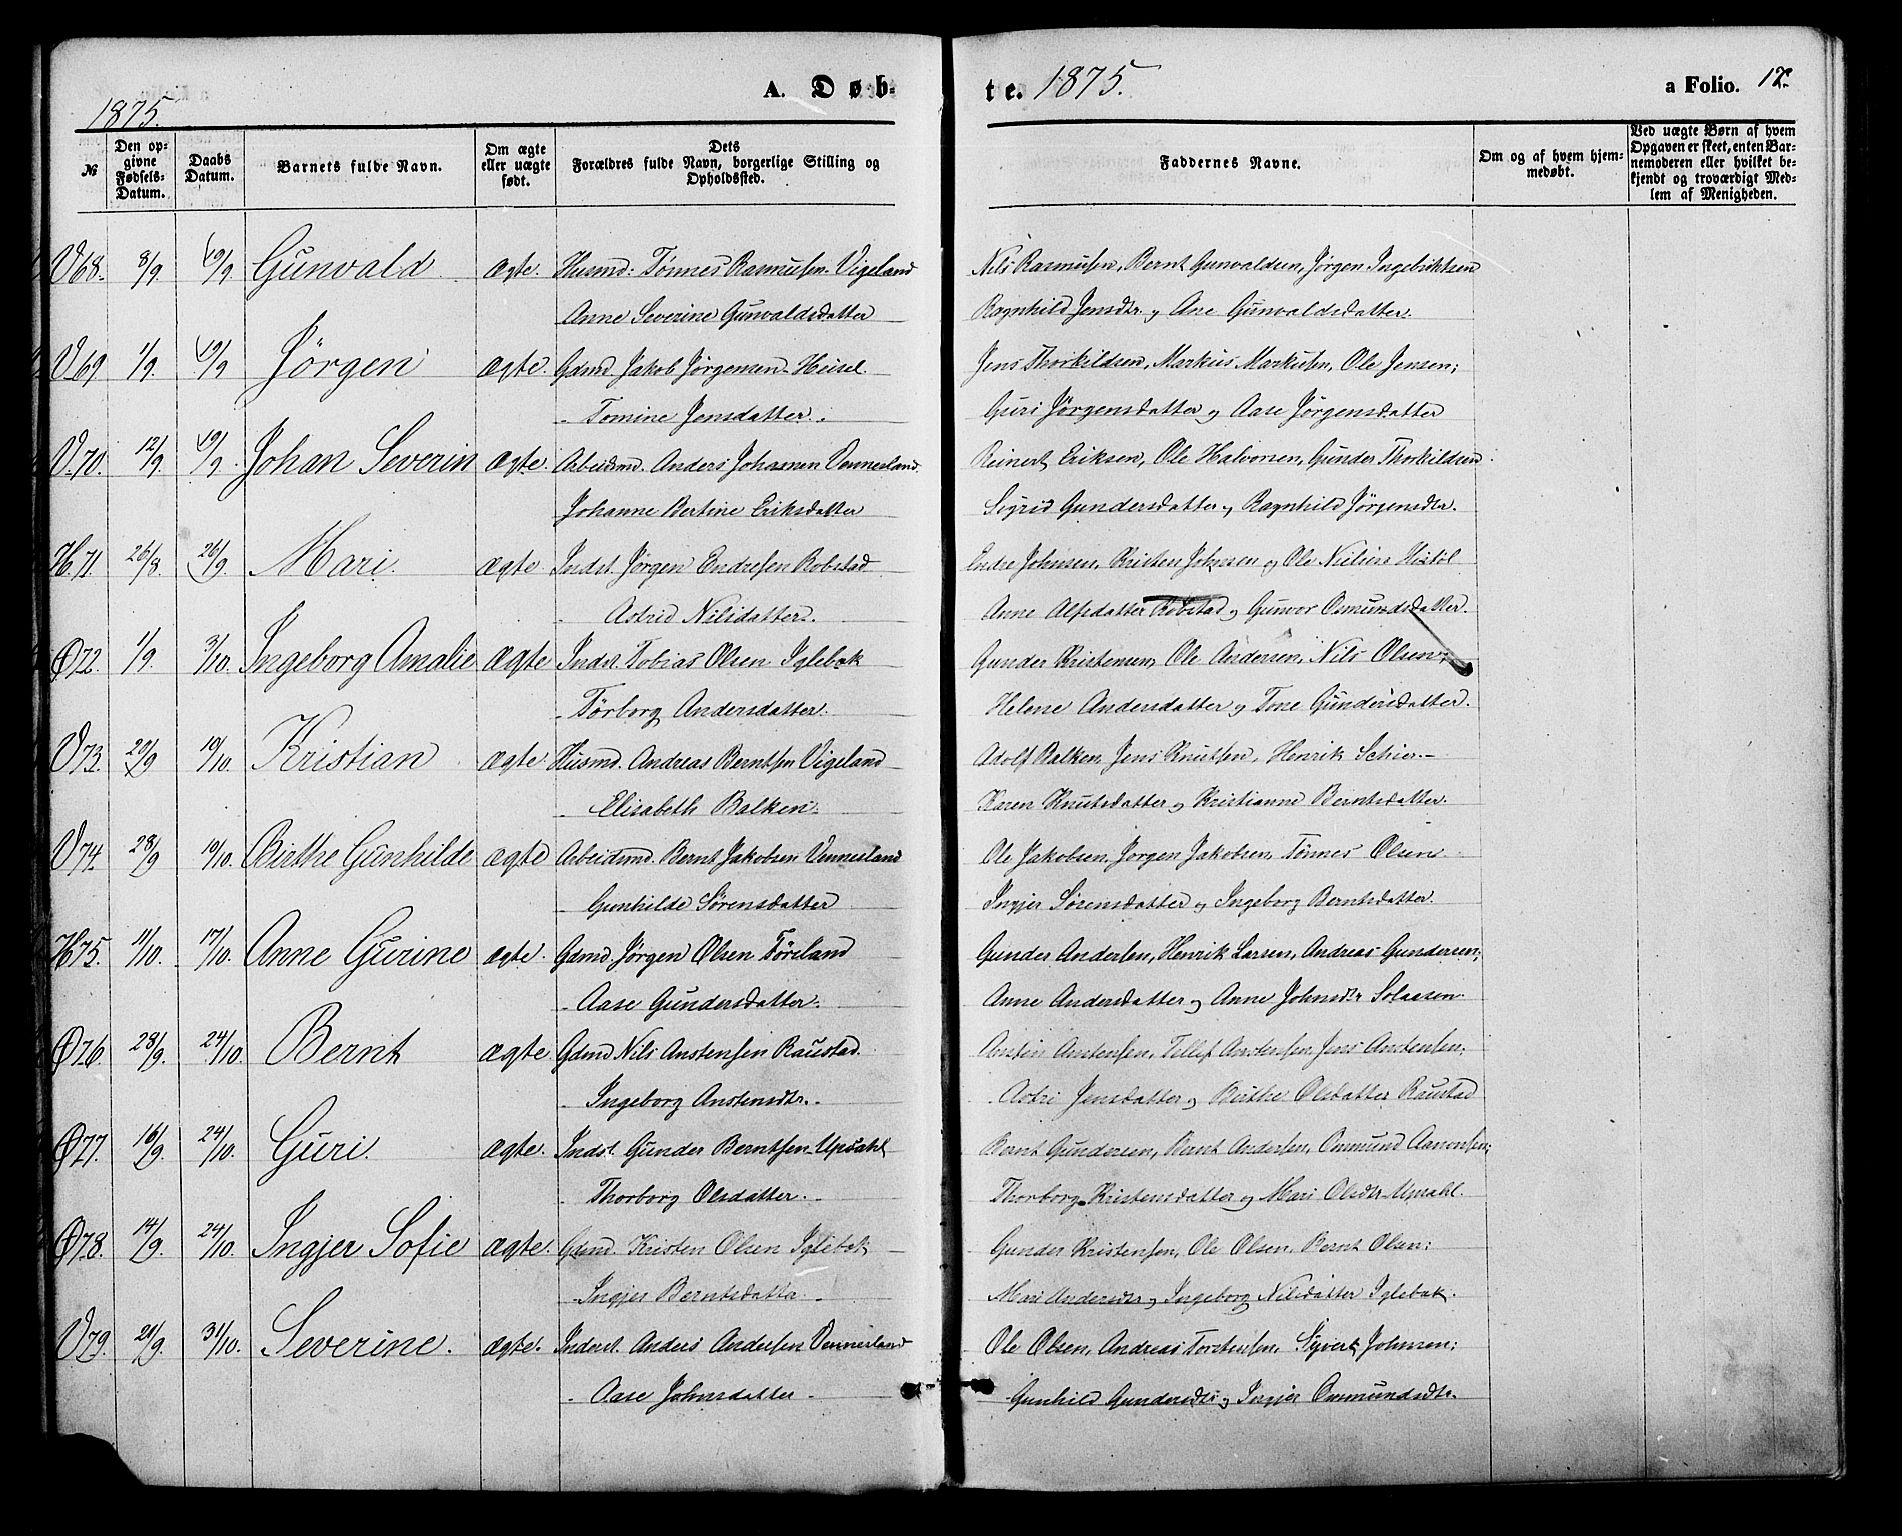 1875.
A. Døb-
te. 1875.
a Folio. 12.
№
Den op-
givne
Fødsels-
Datum.
Daabs
Datum.
Barnets fulde Navn.
Om ægte
eller uægte
født.
Dets
Forældres fulde Navn, borgerlige Stilling og
Opholdssted.
Faddernes Navne.
Om og af hvem hjem-
medøbt.
Ved uægte Børn af hvem
Opgaven er skeet, enten Bar-
nemoderen eller hvilket be-
kjendt og troværdigt Med-
lem af Menigheden.
V68. 8/9. 19/9. Gunvald. ægte. Husmd: Tønnes Rasmusen Vigeland
Nils Rasmusen, Bernt Gunvaldsen, Jørgen Ingebriktsen
Anne Severine Gunvaldsdatter
Ragnhild Jensdtr. og Ane Gunvaldsdatter.
V69 1/9. 19/9 Jørgen ægte. Gdmd Jakob Jørgensen Heisel.
Jens Thorkildsen, Markus Markusen, Ole Jensen;
- Tomine Jensdatter.
Guri Jørgensdatter og Aase Jørgensdatter
V70. 12/9. 19/9. Johan Severin ægte. Arbeidsmd. Anders Johnsen Vennesland.
Reinert Eriksen, Ole Halvorsen, Gunder Thorkildsen
Johanne Bertine Eriksdatter
Sigrid Gundersdatter og Ragnhild Jørgensdtr.
H71. 26/8. 26/9 Mari. ægte. Indst. Jørgen Endresen Robstad
Endre Johnsen, Kristen Johnsen og Ole Nilsen
- Astrid Nilsdatter.
Anne Alfsdatter Robstad og Gunvor Osmundsdatter.
Ø72. 1/9. 3/10. Ingeborg Amalie ægte Indst. Tobias Olsen Iglebæk
Gunder Kristensen, Ole Andersen, Nils Olsen;
- Tørborg Andersdatter.
Helene Andersdatter og Tone Gundersdatter.
V73. 20/9 10/10. Kristian ægte. Husmd. Andreas Berntsen Vigeland
Adolf Balken, Jens Knutsen, Henrik Schier.
- Elisabeth Balken.
Karen Knutsdatter og Kristianne Berntsdatter.
V74. 28/9 10/10. Birthe Gunhilde ægte Arbeidsmd. Bernt Jakobsen Vennesland
Ole Jakobsen, Jørgen Jakobsen, Tønnes Olsen
Gunhilde Sørensdatter
Ingjer Sørensdatter og Ingeborg Berntsdatter.
H75. 11/10. 17/10. Anne Gurine ægte. Gdmd. Jørgen Olsen Føreland
Gunder Andersen, Henrik Larsen, Andreas Gundersen;
- Aase Gundersdatter.
Anne Andersdatter og Anne Johnsdtr Solaasen
Ø76. 28/9. 24/10. Bernt ægte. Gdmd Nils Anstensen Raustad.
Ansten Anstensen, Tellef Anstensen, Jens Anstensen;
- Ingeborg Anstensdtr.
Astri Jensdatter og Birthe Olsdatter Raustad
Ø77. 16/9. 24/10. Guri. ægte. Indst. Gunder Berntsen Upsahl
Bernt Gundersen, Bernt Andersen, Ommund Aanonsen;
- Thorborg Olsdatter.
Thorborg Kristensdatter og Mari Olsdtr Upsahl.
Ø78. 14/9. 24/10. Ingjer Sofie ægte. Gdmd. Kristen Olsen Iglebæk
Gunder Kristensen, Ole Olsen, Bernt Olsen;
- Ingjer Berntsdatter.
Mari Andersdtr og Ingeborg Nilsdatter Iglebæk.
V79. 21/9. 31/10. Severine. ægte. Inderst. Anders Andersen Vennesland
Ole Olsen, Andreas Torstensen, Syvert Johnsen;
- Aase Johnsdatter
Gunhild Gundersdtr og Ingjer Ommundsdtr.